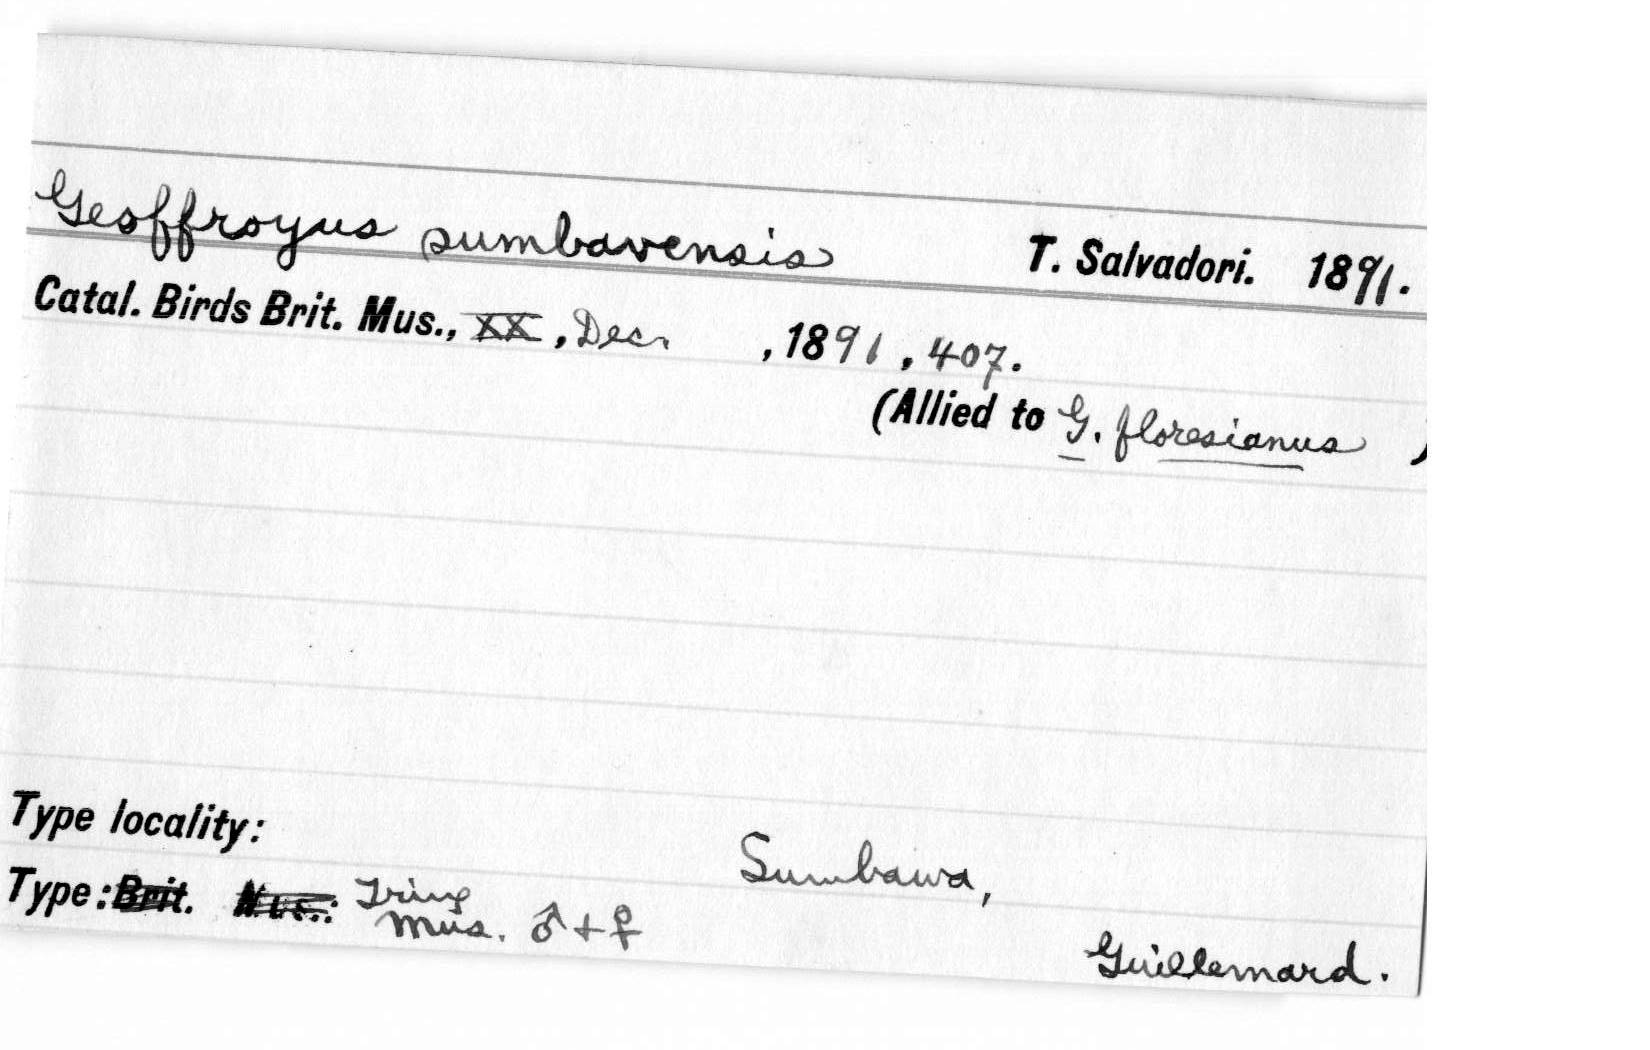 Geoffroyus sumbavensis T. Salvadori. 1891.
Catal. Birds Brit. Mus., XX, Dec. , 1891, 407.
(Allied to G. floresianus )
Type locality:
Sumbawa,
Type: Brit. Mus.: Tring
Mus. ♂ + ♀
Guillemard.